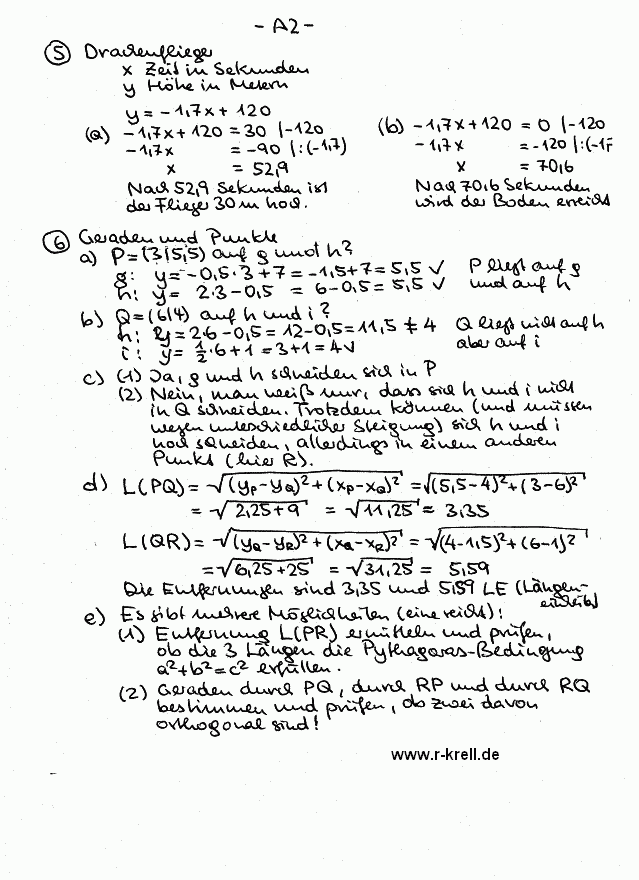 - A2 -
⑤ Drachenflieger
x Zeit in Sekunden
y Höhe in Metern
y = -1,7x + 120
(a) -1,7x + 120 = 30 |-120
-1,7x = -90 |:(-1,7)
x = 52,9
Nach 52,9 Sekunden ist
der Flieger 30 m hoch.
(b) -1,7x + 120 = 0 |-120
-1,7x = -120 |:(-1,7
x = 70,6
Nach 70,6 Sekunden
wird der Boden erreicht
⑥ Geraden und Punkte
a) P = (3|5,5) auf g und h?
g: y = -0,5·3 + 7 = -1,5 + 7 = 5,5 ✓ P liegt auf g
h: y = 2·3 - 0,5 = 6 - 0,5 = 5,5 ✓ und auf h
b) Q = (6|4) auf h und i?
h: y = 2·6 - 0,5 = 12 - 0,5 = 11,5 ≠ 4 Q liegt nicht auf h
i: y = 1/2·6 + 1 = 3 + 1 = 4 ✓ aber auf i
c) (1) Ja, g und h schneiden sich in P
(2) Nein, man weiß nur, dass sich h und i nicht
in Q schneiden. Trotzdem können (und müssen
wegen unterschiedlicher Steigung) sich h und i
noch schneiden, allerdings in einem anderen
Punkt (hier R).
d) L(PQ) = √((yP - yQ)² + (xP - xQ)²) = √((5,5 - 4)² + (3 - 6)²)
= √(2,25 + 9) = √11,25 = 3,35
L(QR) = √((yQ - yR)² + (xQ - xR)²) = √((4 - 1,5)² + (6 - 1)²)
= √(6,25 + 25) = √31,25 = 5,59
Die Entfernungen sind 3,35 und 5,59 LE (Längen-
einheiten)
e) Es gibt mehrere Möglichkeiten (eine reicht):
(1) Entfernung L(PR) ermitteln und prüfen,
ob die 3 Längen die Pythagoras-Bedingung
a² + b² = c² erfüllen.
(2) Geraden durch PQ, durch RP und durch RQ
bestimmen und prüfen, ob zwei davon
orthogonal sind!
www.r-krell.de